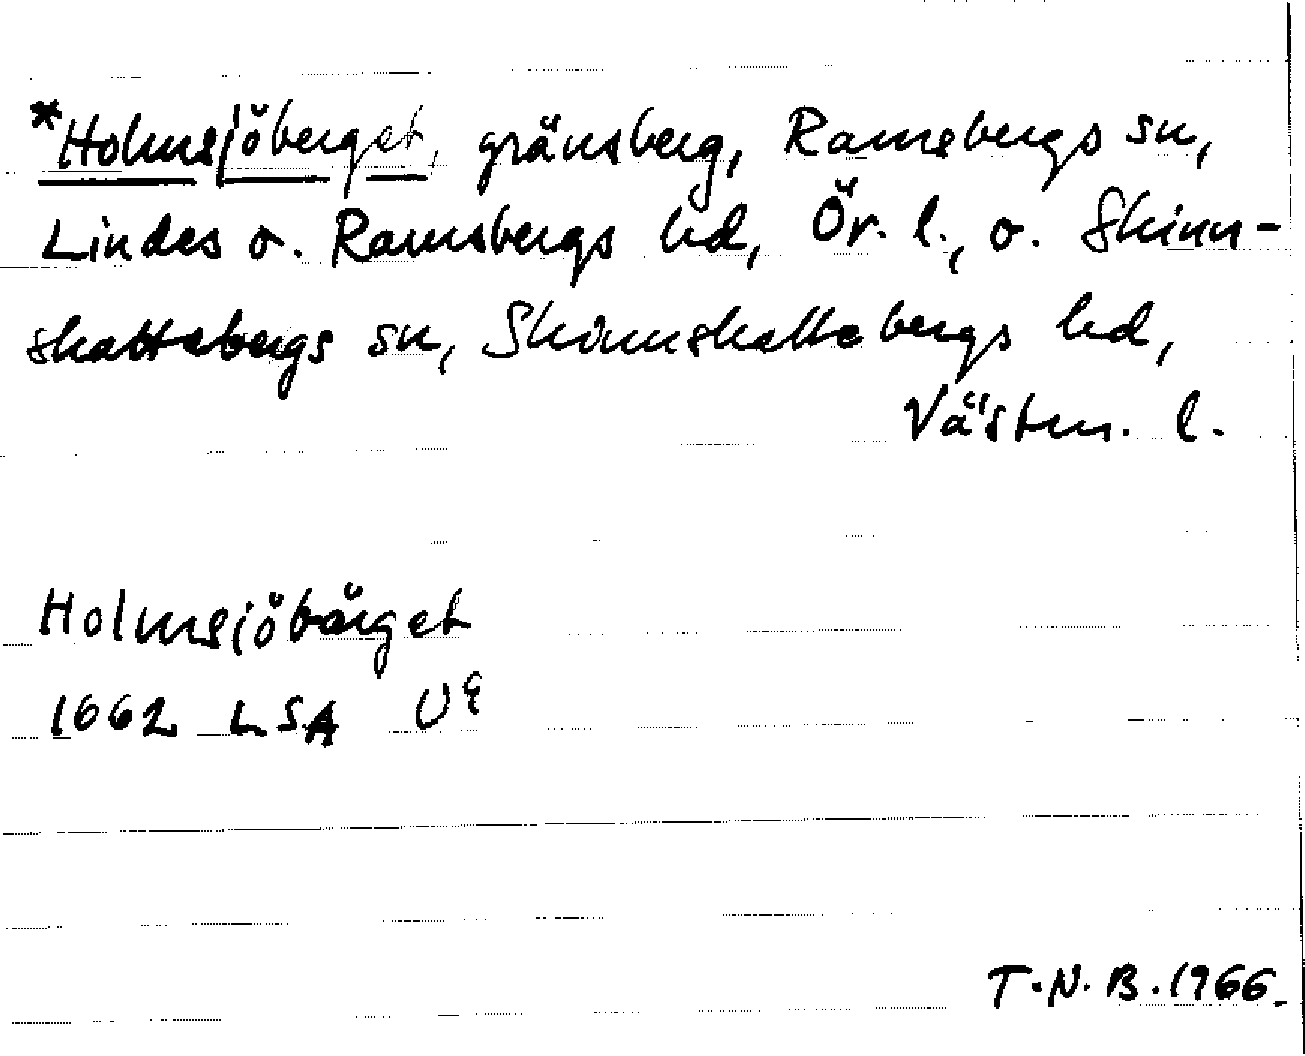 *Holmsjöberget, gränsberg, Ramsbergs sn,
Lindes o. Ramsbergs hd, Ör. l., o. Skinn-
skattebergs sn, Skinnskattebergs hd,
Västm. l.
Holmsjöbärget
1662 LSA U9
T.N.B. 1966.